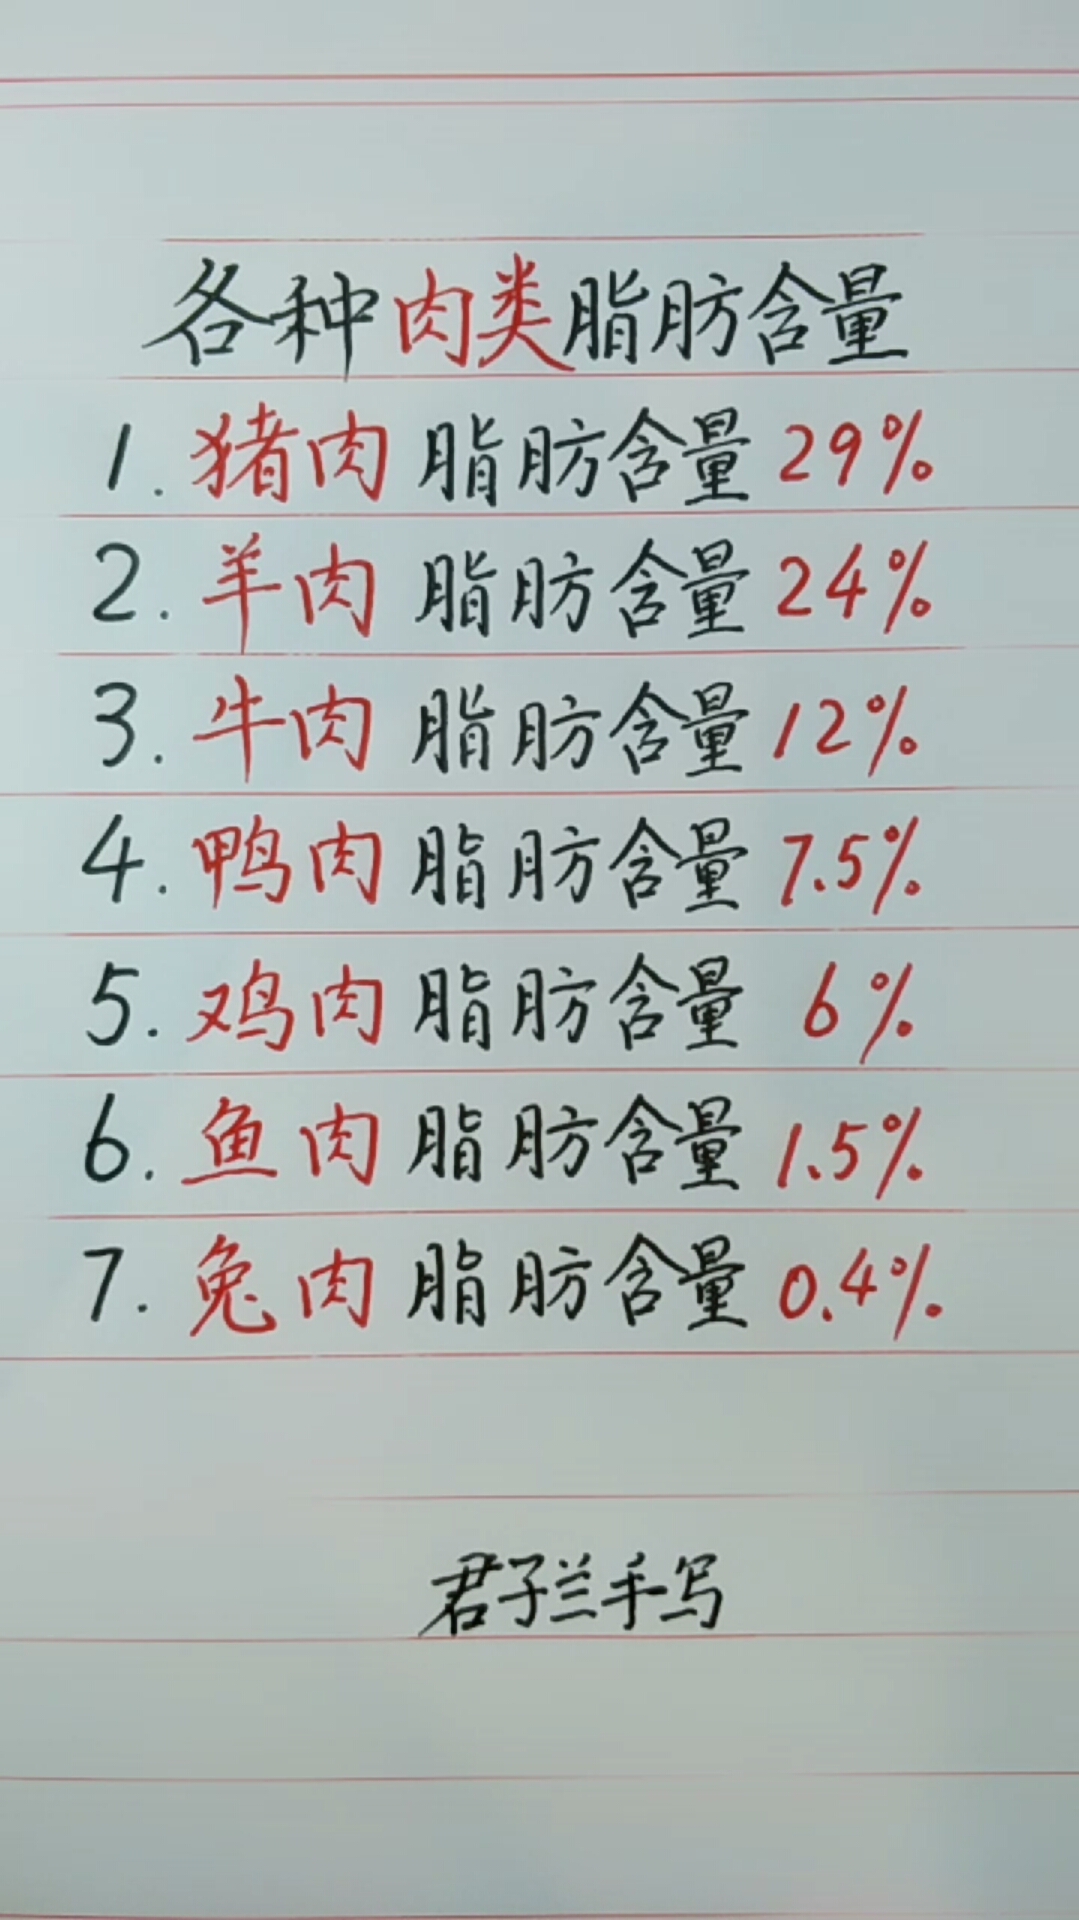 各种肉类脂肪含量
1. 猪肉 脂肪含量 29%
2. 羊肉 脂肪含量 24%
3. 牛肉 脂肪含量 12%
4. 鸭肉 脂肪含量 7.5%
5. 鸡肉 脂肪含量 6%
6. 鱼肉 脂肪含量 1.5%
7. 兔肉 脂肪含量 0.4%
君子兰手写